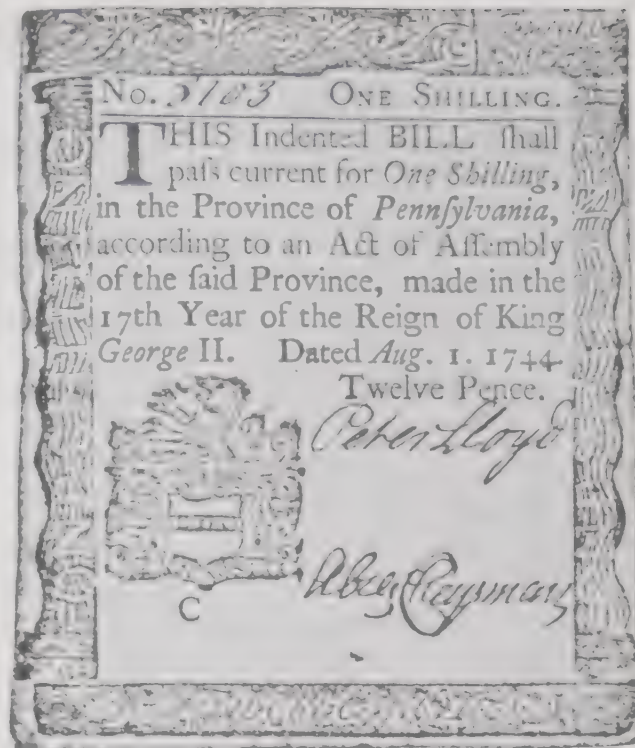 No. 5783 ONE SHILLING.
THIS Indented BILL ſhall
paſs current for One Shilling,
in the Province of Pennſylvania,
according to an Act of Aſſembly
of the ſaid Province, made in the
17th Year of the Reign of King
George II. Dated Aug. 1. 1744.
Twelve Pence.
Peter Lloyd
Abra Chapman
C